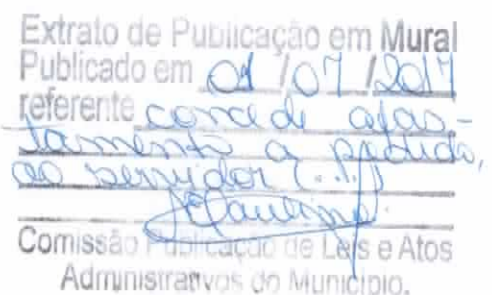 Extrato de Publicação em Mural
Publicado em 01/07/2017
referente concede afas-
tamento a pedido,
ao servidor (...)
Comissão Publicação de Leis e Atos
Administrativos do Município.